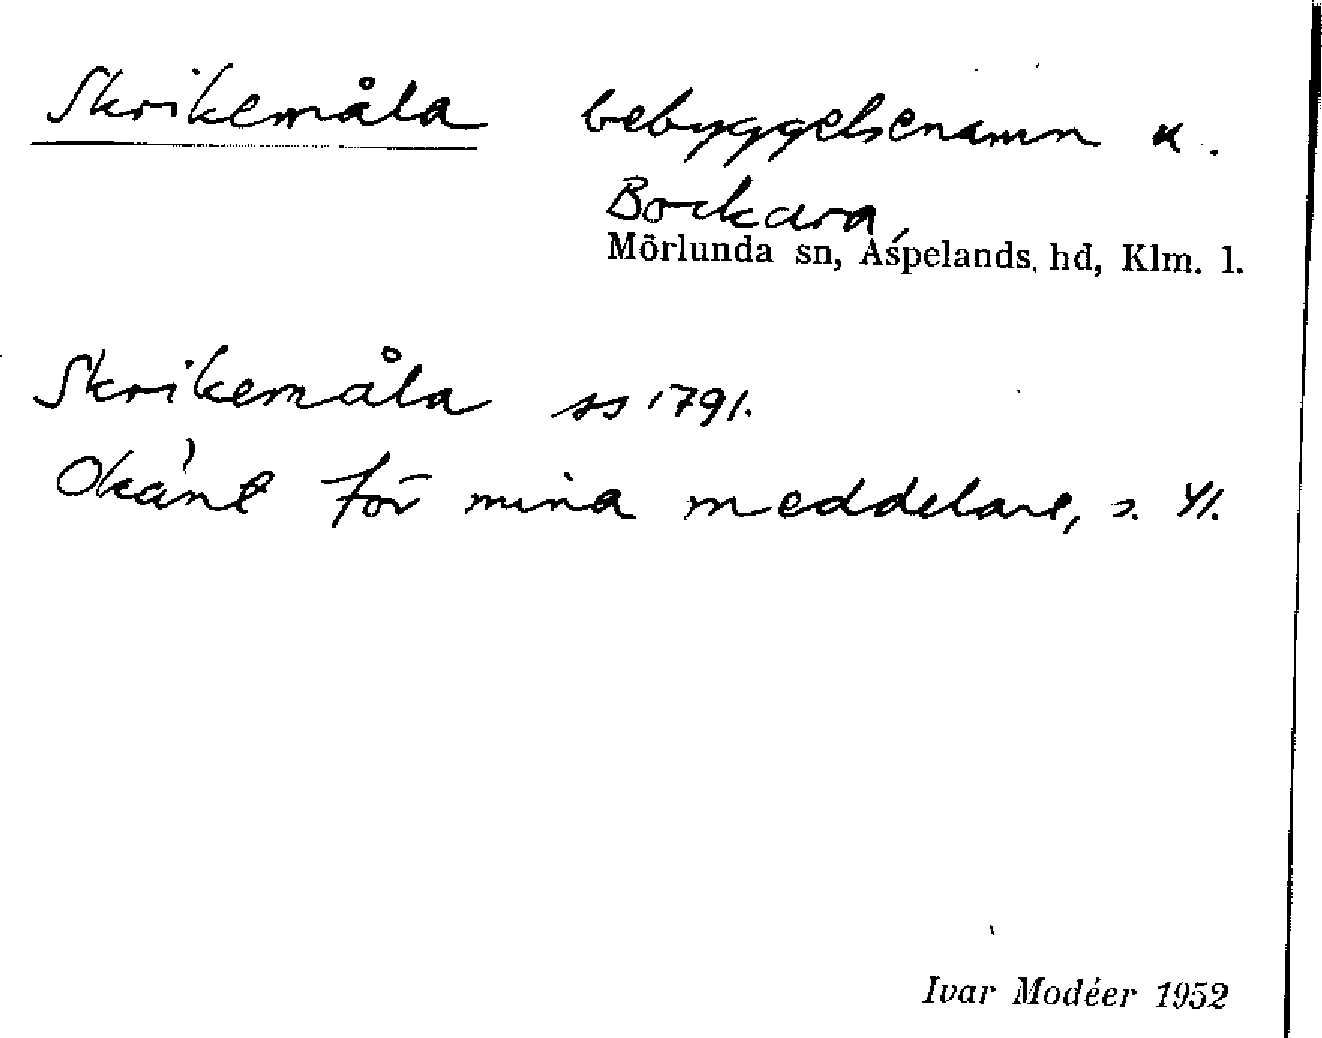 Skrikemåla bebyggelsenamn u.
Bockara,
Mörlunda sn, Aspelands hd, Klm. l.
Skrikemåla ss 1791.
Okänt för mina meddelare, s.
Ivar Modéer 1952